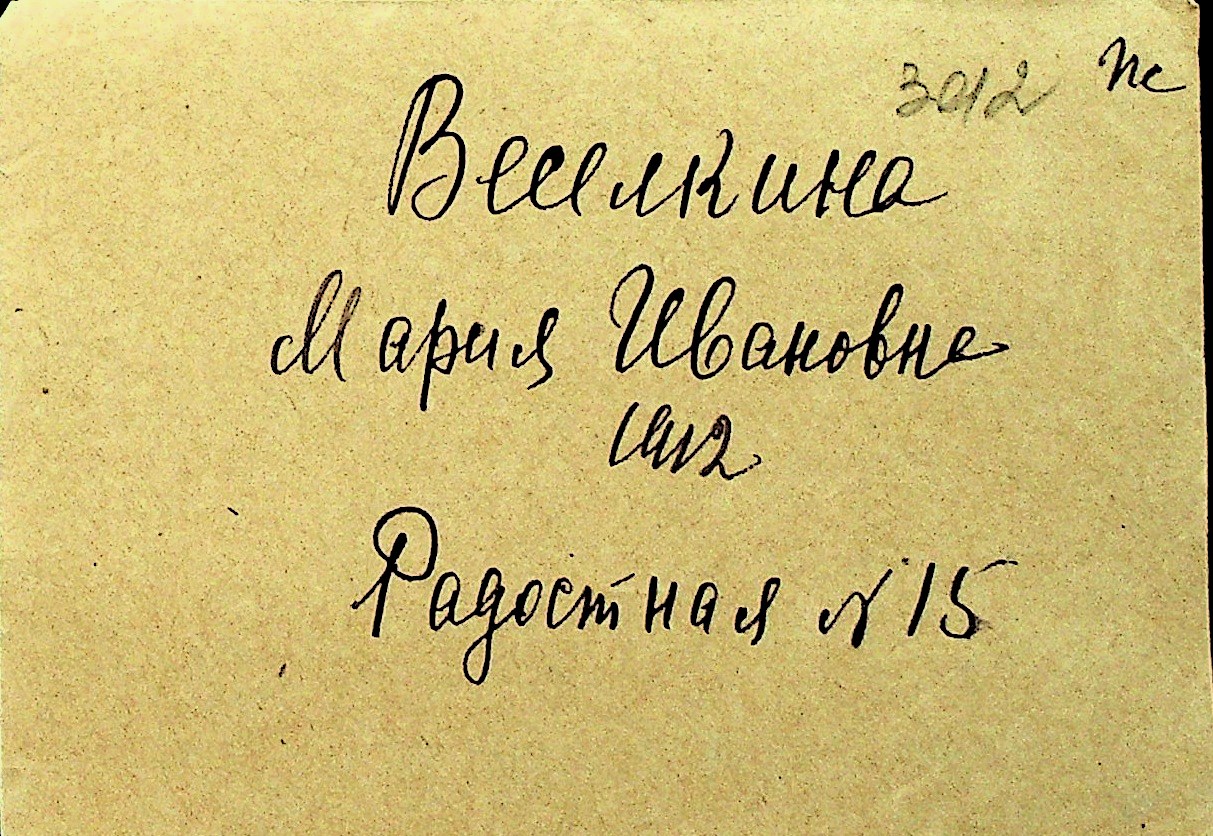 3012 Пс
Веселкина
Мария Ивановна
1912
Радостная N 15